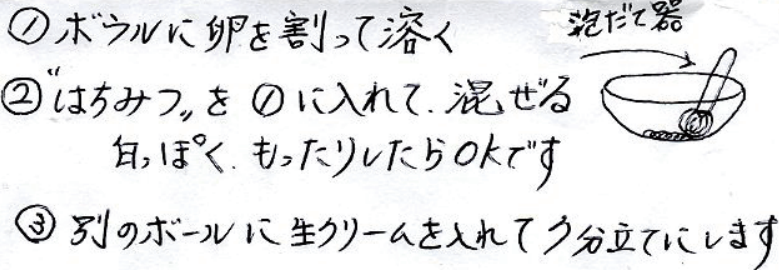 ①ボウルに卵を割って溶く
泡だて器
②"はちみつ„を①に入れて.混ぜる
白っぽく.もったりしたらOKです
③別のボールに生クリームを入れて7分立てにします